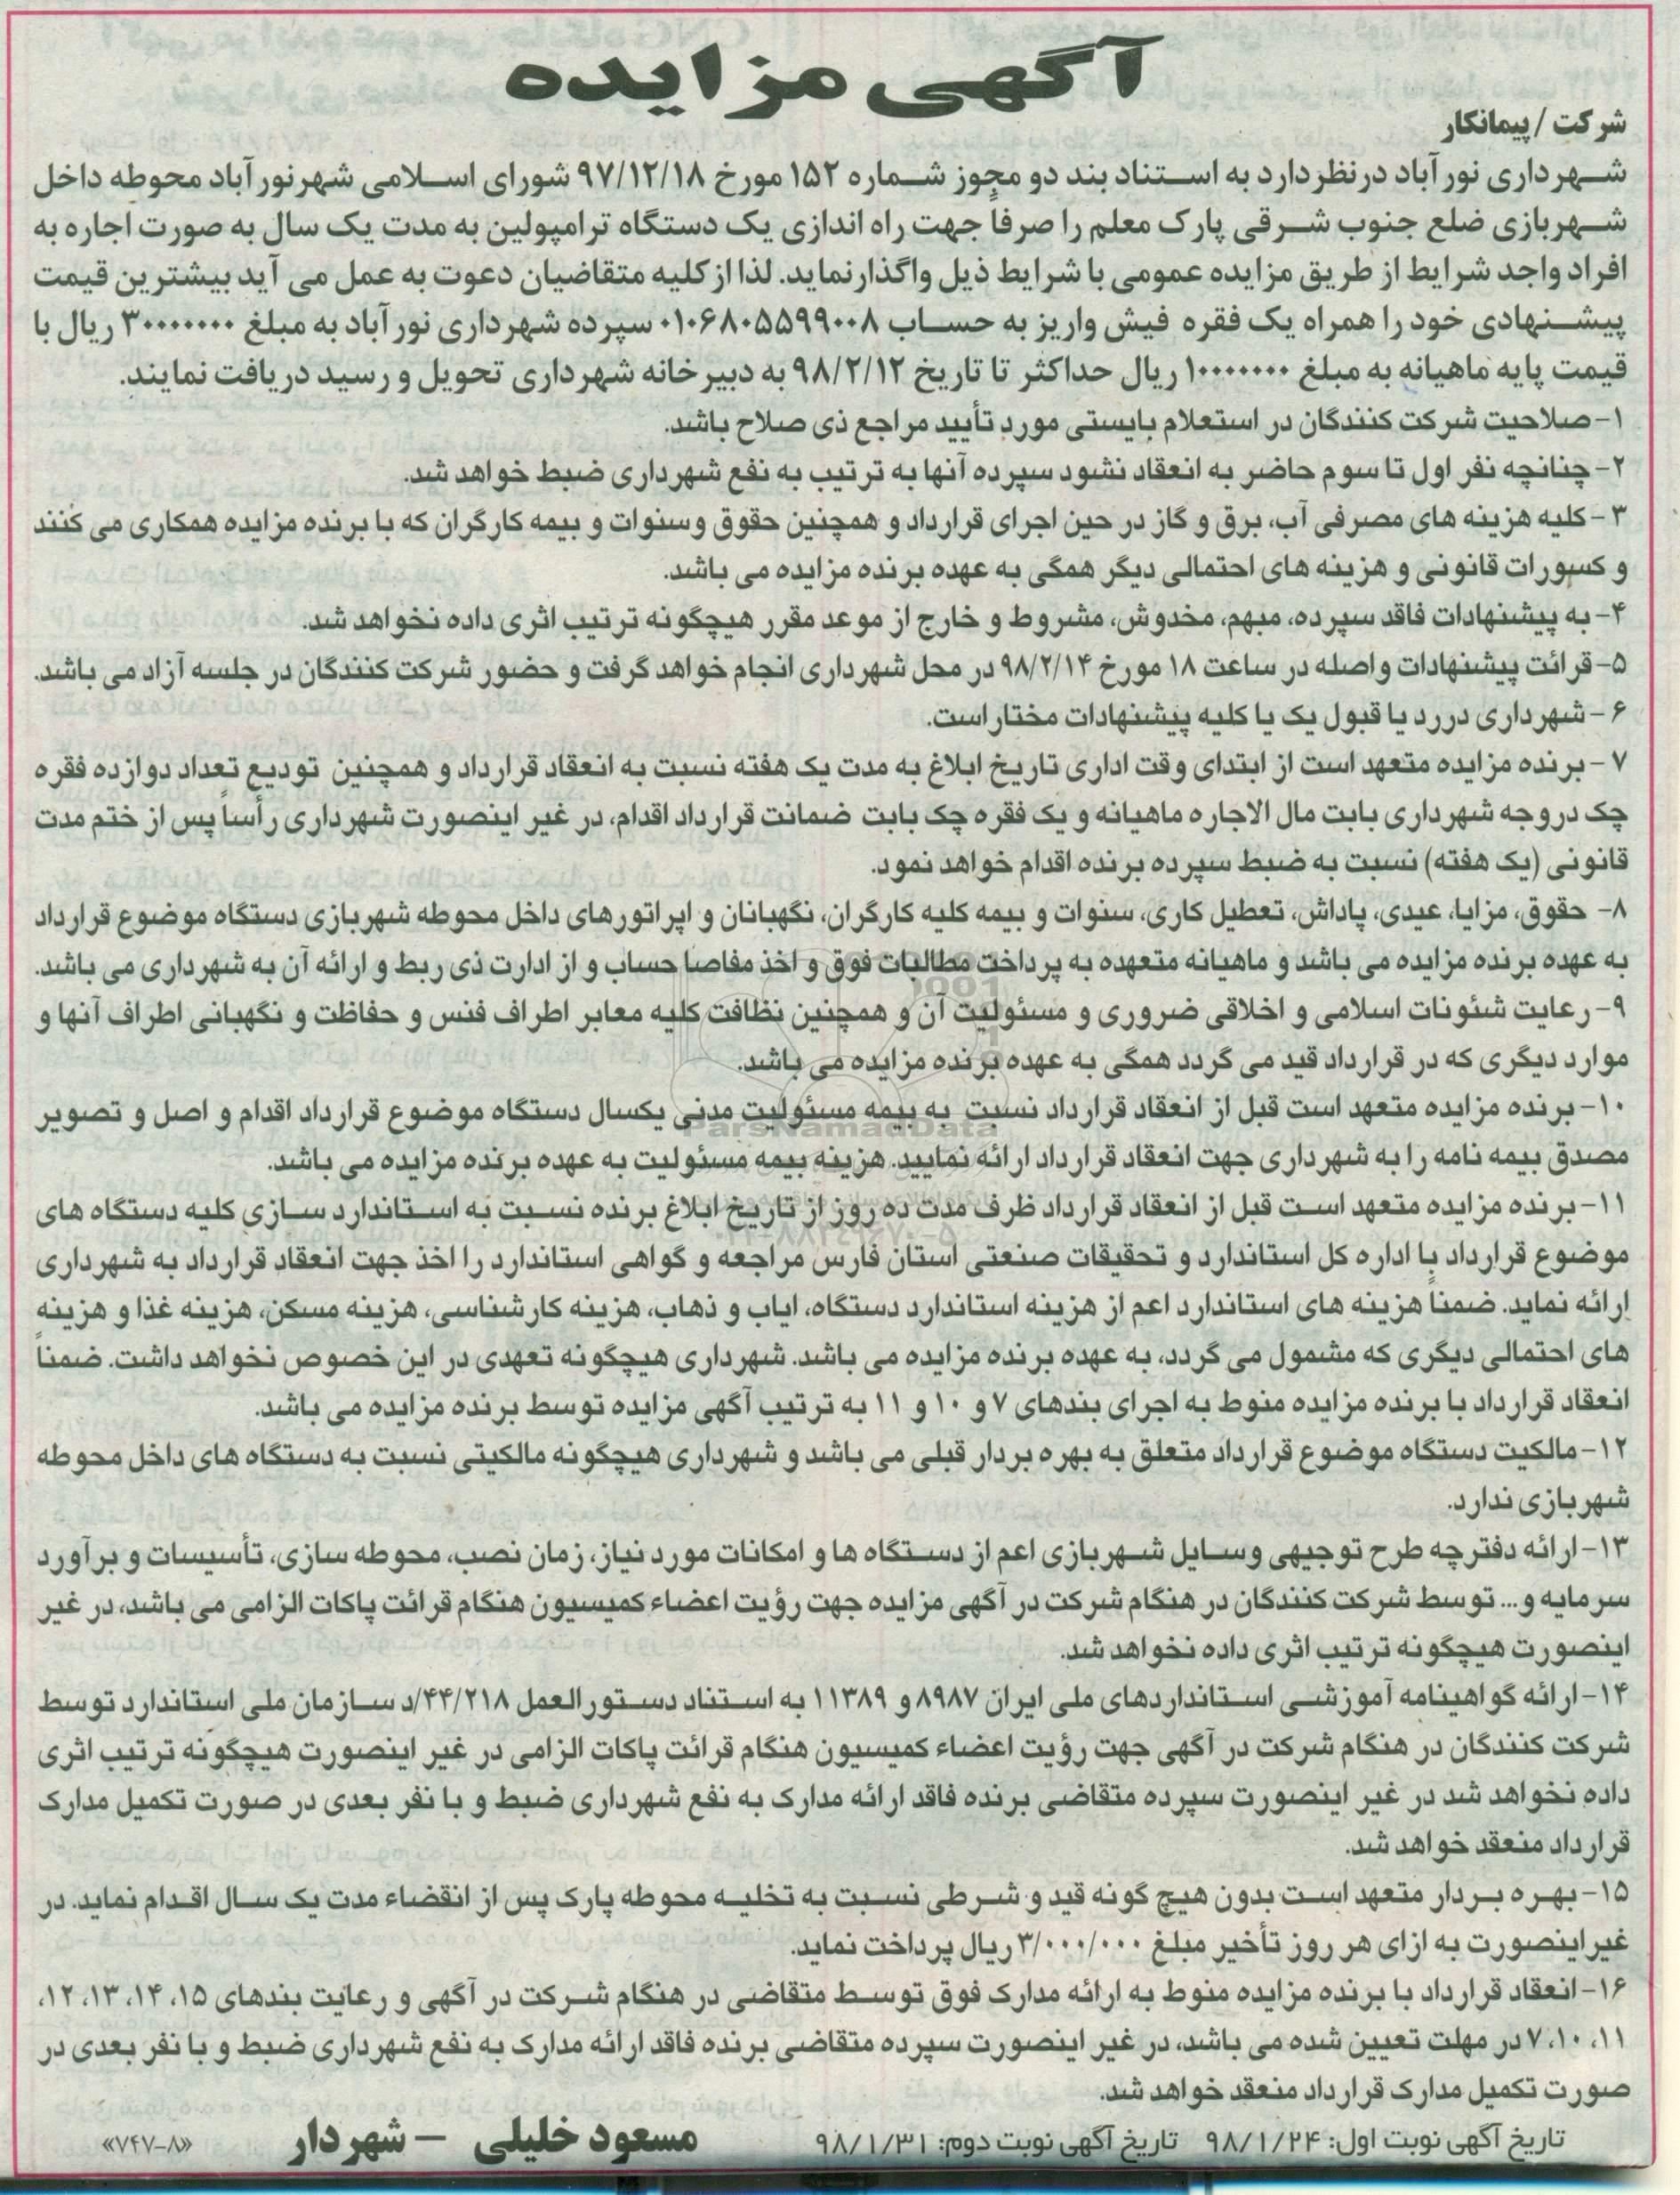 آگهی مزایده
شرکت / پیمانکار
شهرداری نورآباد درنظر دارد به استناد بند دو مجوز شماره ۱۵۲ مورخ ۹۷/۱۲/۱۸ شورای اسلامی شهر نورآباد محوطه داخل
شهربازی ضلع جنوب شرقی پارک معلم را صرفاً جهت راه اندازی یک دستگاه ترامپولین به مدت یک سال به صورت اجاره به
افراد واجد شرایط از طریق مزایده عمومی با شرایط ذیل واگذار نماید. لذا از کلیه متقاضیان دعوت به عمل می آید بیشترین قیمت
پیشنهادی خود را همراه یک فقره فیش واریز به حساب ۰۱۰۶۸۰۵۵۹۹۰۰۸ سپرده شهرداری نورآباد به مبلغ ۳۰۰۰۰۰۰۰ ریال با
قیمت پایه ماهیانه به مبلغ ۱۰۰۰۰۰۰۰ ریال حداکثر تا تاریخ ۹۸/۲/۱۲ به دبیرخانه شهرداری تحویل و رسید دریافت نمایند.
۱- صلاحیت شرکت کنندگان در استعلام بایستی مورد تأیید مراجع ذی صلاح باشد.
۲- چنانچه نفر اول تا سوم حاضر به انعقاد نشود سپرده آنها به ترتیب به نفع شهرداری ضبط خواهد شد.
۳- کلیه هزینه های مصرفی آب، برق و گاز در حین اجرای قرارداد و همچنین حقوق و سنوات و بیمه کارگران که با برنده مزایده همکاری می کنند
و کسورات قانونی و هزینه های احتمالی دیگر همگی به عهده برنده مزایده می باشد.
۴- به پیشنهادات فاقد سپرده، مبهم، مخدوش، مشروط و خارج از موعد مقرر هیچگونه ترتیب اثری داده نخواهد شد.
۵- قرائت پیشنهادات واصله در ساعت ۱۸ مورخ ۹۸/۲/۱۴ در محل شهرداری انجام خواهد گرفت و حضور شرکت کنندگان در جلسه آزاد می باشد.
۶- شهرداری در رد یا قبول یک یا کلیه پیشنهادات مختار است.
۷- برنده مزایده متعهد است از ابتدای وقت اداری تاریخ ابلاغ به مدت یک هفته نسبت به انعقاد قرارداد و همچنین تودیع تعداد دوازده فقره
چک در وجه شهرداری بابت مال الاجاره ماهیانه و یک فقره چک بابت ضمانت قرارداد اقدام، در غیر اینصورت شهرداری رأساً پس از ختم مدت
قانونی (یک هفته) نسبت به ضبط سپرده برنده اقدام خواهد نمود.
۸- حقوق، مزایا، عیدی، پاداش، تعطیل کاری، سنوات و بیمه کلیه کارگران، نگهبانان و اپراتورهای داخل محوطه شهربازی دستگاه موضوع قرارداد
به عهده برنده مزایده می باشد و ماهیانه متعهده به پرداخت مطالبات فوق و اخذ مفاصا حساب و از ادارت ذی ربط و ارائه آن به شهرداری می باشد.
۹- رعایت شئونات اسلامی و اخلاقی ضروری و مسئولیت آن و همچنین نظافت کلیه معابر اطراف فنس و حفاظت و نگهبانی اطراف آنها و
موارد دیگری که در قرارداد قید می گردد همگی به عهده برنده مزایده می باشد.
۱۰- برنده مزایده متعهد است قبل از انعقاد قرارداد نسبت به بیمه مسئولیت مدنی یکسال دستگاه موضوع قرارداد اقدام و اصل و تصویر
ParsNamadData
مصدق بیمه نامه را به شهرداری جهت انعقاد قرارداد ارائه نمایید. هزینه بیمه مسئولیت به عهده برنده مزایده می باشد.
۱۱- برنده مزایده متعهد است قبل از انعقاد قرارداد ظرف مدت ده روز از تاریخ ابلاغ برنده نسبت به استاندارد سازی کلیه دستگاه های
موضوع قرارداد با اداره کل استاندارد و تحقیقات صنعتی استان فارس مراجعه و گواهی استاندارد را اخذ جهت انعقاد قرارداد به شهرداری
ارائه نماید. ضمناً هزینه های استاندارد اعم از هزینه استاندارد دستگاه، ایاب و ذهاب، هزینه کارشناسی، هزینه مسکن، هزینه غذا و هزینه
های احتمالی دیگری که مشمول می گردد، به عهده برنده مزایده می باشد. شهرداری هیچگونه تعهدی در این خصوص نخواهد داشت. ضمناً
انعقاد قرارداد با برنده مزایده منوط به اجرای بندهای ۷ و ۱۰ و ۱۱ به ترتیب آگهی مزایده توسط برنده مزایده می باشد.
۱۲- مالکیت دستگاه موضوع قرارداد متعلق به بهره بردار قبلی می باشد و شهرداری هیچگونه مالکیتی نسبت به دستگاه های داخل محوطه
شهربازی ندارد.
۱۳- ارائه دفترچه طرح توجیهی وسایل شهربازی اعم از دستگاه ها و امکانات مورد نیاز، زمان نصب، محوطه سازی، تأسیسات و برآورد
سرمایه و... توسط شرکت کنندگان در هنگام شرکت در آگهی مزایده جهت رؤیت اعضاء کمیسیون هنگام قرائت پاکات الزامی می باشد، در غیر
اینصورت هیچگونه ترتیب اثری داده نخواهد شد.
۱۴- ارائه گواهینامه آموزشی استانداردهای ملی ایران ۸۹۸۷ و ۱۱۳۸۹ به استناد دستورالعمل ۴۴/۲۱۸/د سازمان ملی استاندارد توسط
شرکت کنندگان در هنگام شرکت در آگهی جهت رؤیت اعضاء کمیسیون هنگام قرائت پاکات الزامی در غیر اینصورت هیچگونه ترتیب اثری
داده نخواهد شد در غیر اینصورت سپرده متقاضی برنده فاقد ارائه مدارک به نفع شهرداری ضبط و با نفر بعدی در صورت تکمیل مدارک
قرارداد منعقد خواهد شد.
۱۵- بهره بردار متعهد است بدون هیچ گونه قید و شرطی نسبت به تخلیه محوطه پارک پس از انقضاء مدت یک سال اقدام نماید. در
غیراینصورت به ازای هر روز تأخیر مبلغ ۳/۰۰۰/۰۰۰ ریال پرداخت نماید.
۱۶- انعقاد قرارداد با برنده مزایده منوط به ارائه مدارک فوق توسط متقاضی در هنگام شرکت در آگهی و رعایت بندهای ۱۵، ۱۴، ۱۳، ۱۲،
۱۱، ۱۰، ۷ در مهلت تعیین شده می باشد، در غیر اینصورت سپرده متقاضی برنده فاقد ارائه مدارک به نفع شهرداری ضبط و با نفر بعدی در
صورت تکمیل مدارک قرارداد منعقد خواهد شد.
تاریخ آگهی نوبت اول: ۹۸/۱/۲۴ تاریخ آگهی نوبت دوم: ۹۸/۱/۳۱ مسعود خلیلی - شهردار «۷۴۷-۸»